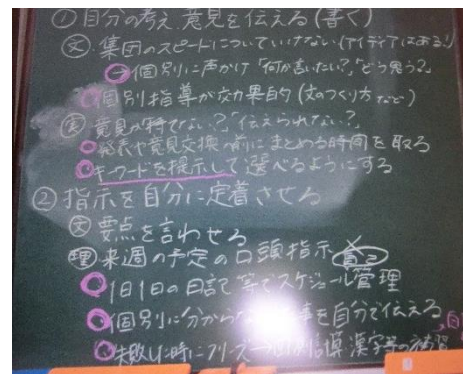 ①自分の考え意見を伝える(書く)
㊛集団のスピードについていけない(アイディアはある!)
→個別に声かけ「何が言いたい?」「どう思う?」
個別指導が効果的(文のつくり方など)
意見が持てない?「伝えられない?」
発表や意見交換の前にまとめる時間を取る
キーワードを提示して選べるようにする
②指示を自分に定着させる
要点を言わせる
理 来週の予定の口頭指示
1日1日の日記で等でスケジュール管理
個別に分からない事を自分で伝える
失敗した時にフリーズ→個別 漢字等の補習